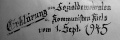 Einklärung der Sozialdemokraten
Kommunisten Kiels
vom 1. Sept. 1945